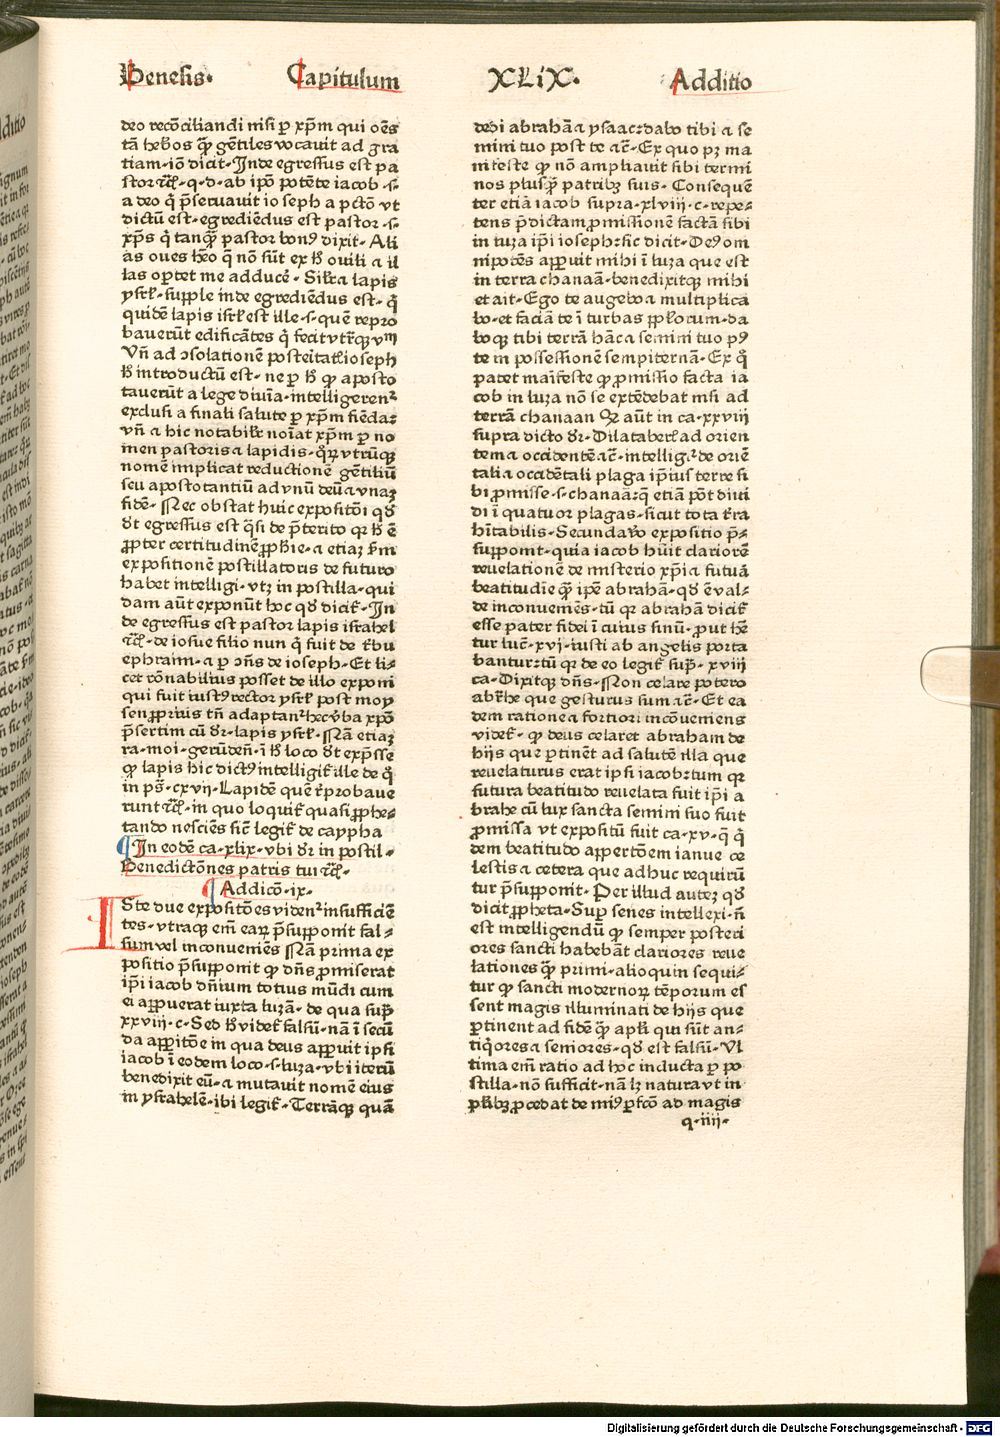 Genesis. Capitulum XLiX. Additio
deo recōciliandi nisi ꝑ xp̄m qui oēs
tā heb̓os q̄ꝫ gētiles vocauit ad gra
tiam·iō dicit·Inde egressus est pa
stor ⁊cͣ·q·d·ab ip̄o potēte iacob ·s·
a deo q̇ p̄seruauit ioseph a pctō vt
dictū est·egrediēdus est pastor ·s·
xp̄s q̇ tanq̄ꝫ pastor bonꝰ dixit· Ali
as oues h̄eo q̄ nō sūt ex h̓ ouili ⁊ il
las oꝑtet me adducē· Sil̓r ⁊ lapis
ysrl̓·supple inde egrediēdus est· q̇
quidē lapis isrl̓ est ille ·s·quē repro
bauerūt edificātes q̇ fecit vtrāqꝫ vnū
Vn̄ ad ↄsolationē posteritatꝭ ioseph
h̓ introductū est·ne ꝑ h̓ ꝙ aposto
tauerūt a lege diuīa·intelligerent᷑
exclusi a finali salute ꝑ xp̄m fiēdaꝫ
vn̄ ⁊ hic notabilr̓ noīat xp̄m ꝑ no
men pastoris ⁊ lapidis·qꝛ vtrūqꝫ
nomē implicat reductionē gētiliū
seu apostotantiū ad vnū deū ⁊ vnaꝫ
fidē· Nec obstat huic expositōi qd̓
dr̓ egressus est q̄si de p̄terito qꝛ h̓ ē
ꝓpter certitudinē ꝓph̓ie·⁊ etiaꝫ ẜm
expositionē postillatoris de futuro
habet intelligi·vtꝫ in postilla·qui
dam aūt exponūt hoc qd̓ dicit᷑·In
de egressus est pastor lapis israhel
⁊cͣ·de iosue filio nun q̇ fuit de tr̓bu
ephraim·⁊ ꝑ ↄn̄s de ioseph·Et li⸗
cet rōnabilius posset de illo exponi
qui fuit iustꝰ rector ysrl̓ post moy
sen ꝓprius tn̄ adaptant᷑ hec v̓ba xp̄o
p̄sertim cū dr̓·lapis ysrl̓·Nā etiaꝫ
ra·moi·gerūden̄·ī h̓ loco dr̓ exp̄sse
ꝙ lapis hic dictꝰ intelligit᷑ ille de q̇
in ps̄·cxvij·Lapidē quē r̓probaue
runt ⁊cͣ·in quo loquit᷑ quasi ꝓphe⸗
tando nosciēs sic̄ legit᷑ de cayppha
¶In eodē ca·xlix·vbi dr̓ in postil⸗
Benedictōnes patris tui ⁊cͣ·
¶Addicō·ix·
ISte due expositōes vident᷑ insufficiē
tes·vtraqꝫ em̄ eaꝝ p̄supponit fal⸗
sum vel inconueniēs Nā prima ex
positio p̄supponit ꝙ dn̄s ꝓmiserat
ip̄i iacob dn̄ium totius mūdi cum
ei apꝑuerat iuxta luzā·de qua sup̄
xxviij·c·Sed h̓ videt᷑ falsū·nā ī secū
da apꝑitōe in qua deus apꝑuit ipsi
iacob ī eodem loco·s·luza·vbi iterū
benedixit eū·⁊ mutauit nomē eius
in ysrahelē·ibi legit᷑·Terrāqꝫ quā
dedi abrahā ⁊ ysaac:dabo tibi ⁊ se
mini tuo post te ⁊c̄·Ex quo pꝫ ma
nifeste ꝙ nō ampliauit sibi termi
nos plusq̄ꝫ patribꝫ suis· Consequē
ter etiā iacob supra·xlviij·c·repe⸗
tens p̄dictam ꝓmissionē factā sibi
in luza ip̄i ioseph:sic dicit·Deꝰ om
nipotēs apꝑuit mihi ī luza que est
in terra chanaā·benedixitqꝫ mihi
et ait·Ego te augebo ⁊ multiplica
bo·et faciā te ī turbas ppl̓orum·da
boqꝫ tibi terrā hāc ⁊ semini tuo pꝰ
te in possessionē sempiternā·Ex q̇
patet maīfeste ꝙ ꝓmissio facta ia
cob in luza nō se extēdebat nisi ad
terrā chanaan Qꝫ aūt in ca·xxviij
supra dicto dr̓·Dilataberꝭ ad orien
tem ⁊ occidentē ⁊c̄·intelligit᷑ de oriē
tali ⁊ occidētali plaga ip̄ius terre si
bi ꝓmisse·s·chanaaꝫ:q̄ etiā pōt diui
di ī quatuor plagas·sicut tota tr̓ra
h̄itabilis·Secunda v̓o expositio p̄⸗
supponit·quia iacob h̄uit clariorē
reuelationē de misterio xp̄i ⁊ futuā
beatitudīe q̄ꝫ ip̄e abrahā·qd̓ ē val⸗
de inconueniēs·tū qꝛ abrahā dicit᷑
esse pater fidei ī cuius sinū·ꝓut h̄e
tur luc̄·xvj·iusti ab angelis porta
bantur:tū qꝛ de eo legit᷑ sup̄·xviij
ca·Dixitqꝫ dn̄s·Non celare potero
abrh̄e que gesturus sum ⁊c̄·Et ea
dem ratione ⁊ fortiori incōueniens
videt᷑·ꝙ deus celaret abraham de
hijs que ꝑtinēt ad salutē illa que
reuelaturus erat ipsi iacob:tum qꝛ
futura beatitudo reuelata fuit ip̄i a
brahe cū lux sancta semini suo fuit
ꝓmissa vt expositū fuit ca·xv·q̄ q̇
dem beatitudo apꝑtōem ianue ce
lestis ⁊ cetera que adhuc requirū
tur p̄supponit·Per illud auteꝫ qd̓
dicit ꝓpheta·Suꝑ senes intellexi·n̄
est intelligendū ꝙ semper posteri
ores sancti habebāt clariores reue
lationes q̄ꝫ primi·alioquin sequi⸗
tur ꝙ sancti modernoꝝ tēporum es
sent magis illuminati de hijs que
ꝑtinent ad fidē q̄ꝫ apl̓i qui sūt an⸗
tiq̇ores ⁊ seniores·qd̓ est falsū·Vl
tima em̄ ratio ad hoc inducta ꝑ po
stilla·nō sufficit·nā lꝫ natura vt in
pl̓ibꝫ ꝓcedat de minꝰ ꝑfcō ad magis
q·iiij·
Digitalisierung gefördert durch die Deutsche Forschungsgemeinschaft - DFG